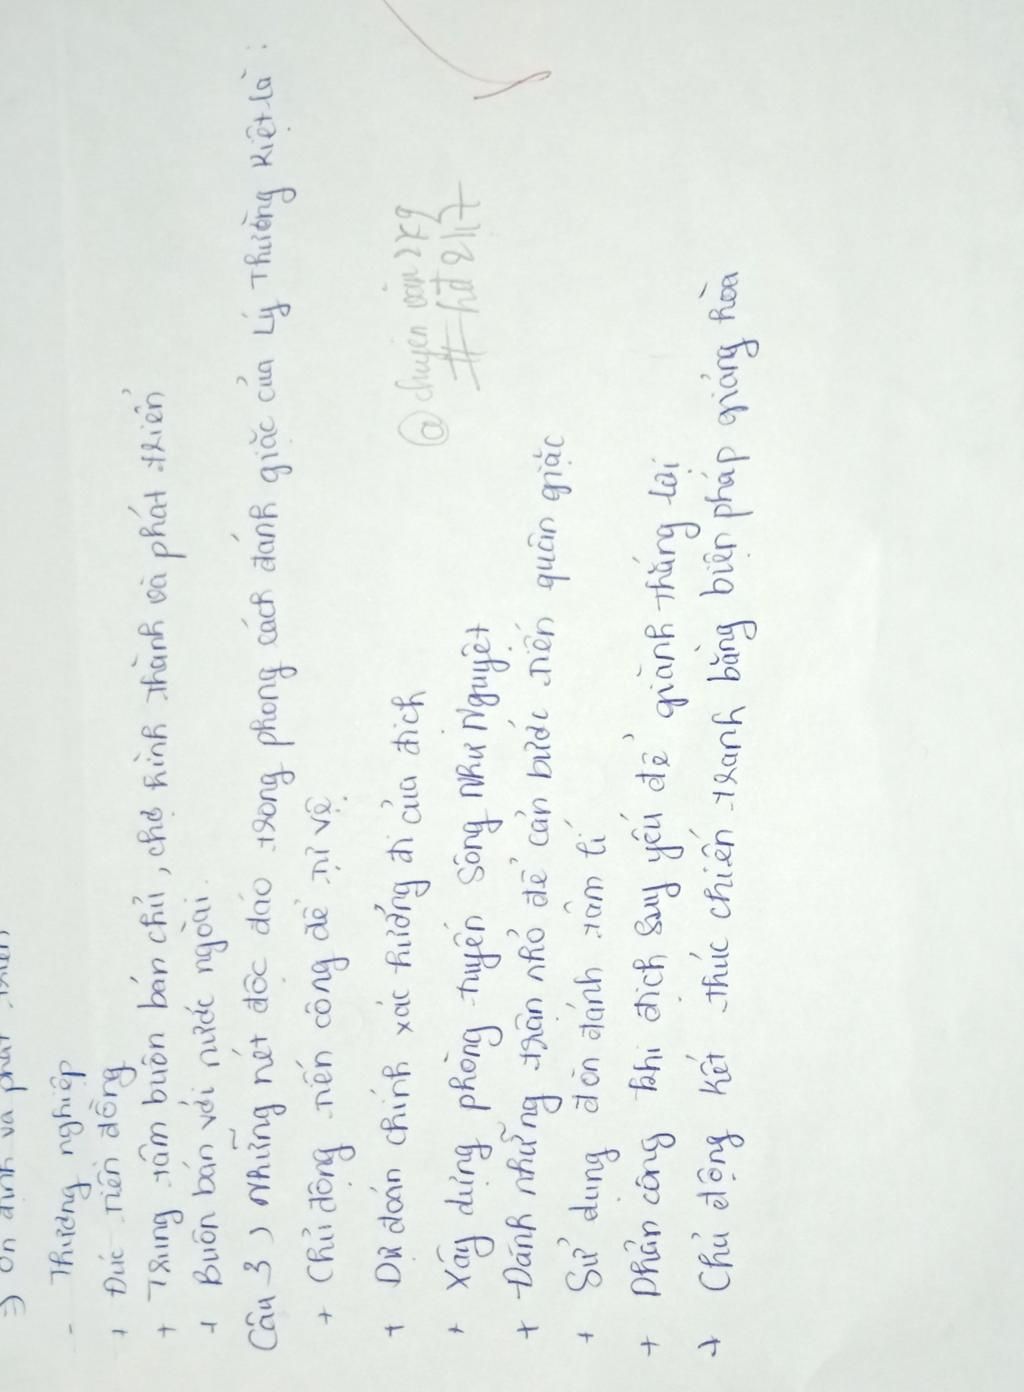 =) ổn định và phát triển
- Thương nghiệp
+ Đúc tiền đồng
+ Trung tâm buôn bán chủ, chợ hình thành và phát triển
+ Buôn bán với nước ngoài.
Câu 3) Những nét độc đáo trong phong cách đánh giặc của Lý Thường Kiệt là :
+ Chủ động tiến công để tự vệ
+ Dự đoán chính xác hướng đi của địch
@ chuyên văn 2k9
# hđ 2k7
+ Xây dựng phòng tuyến sông Như Nguyệt
+ Đánh những trận nhỏ để cản bước tiến quân giặc
+ Sử dụng đòn đánh tâm lí
+ Phản công khi địch suy yếu để giành thắng lợi
+ Chủ động kết thúc chiến tranh bằng biện pháp giảng hòa